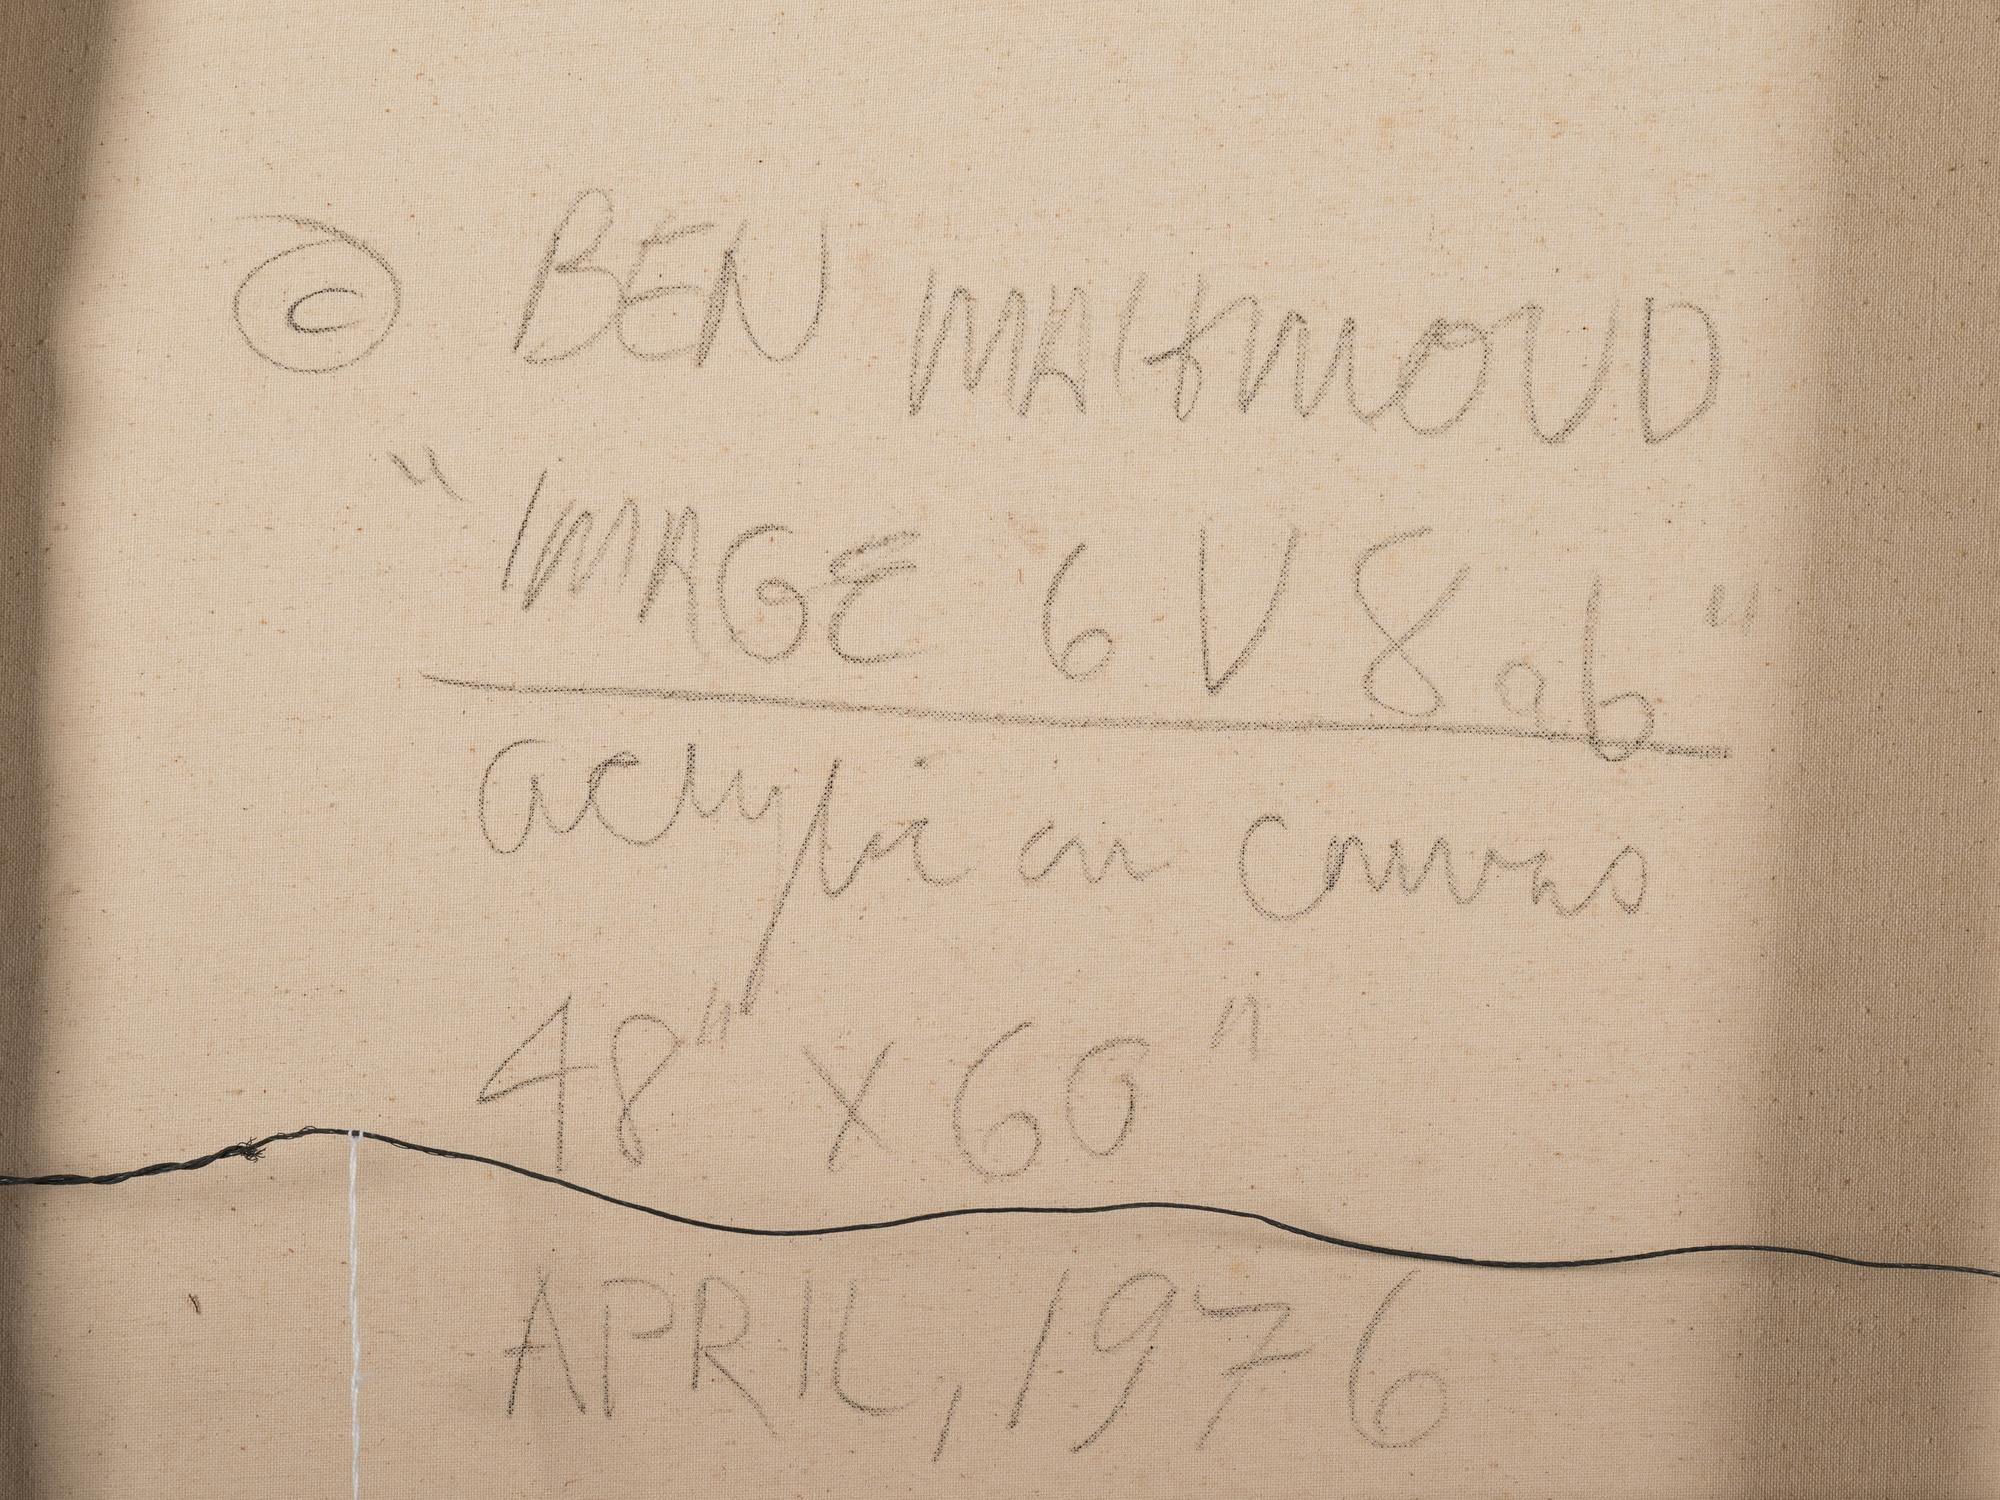 © BEN MAHMOUD
"IMAGE 6 V 8 ab"
acrylic on canvas
48" X 60"
APRIL, 1976